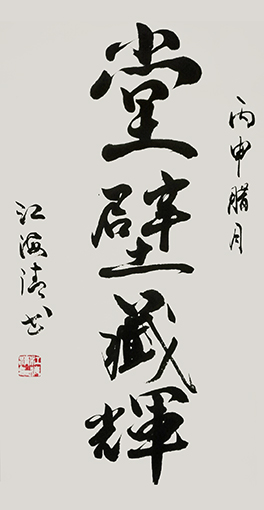 丙申腊月
堂壁藏輝
江海清书